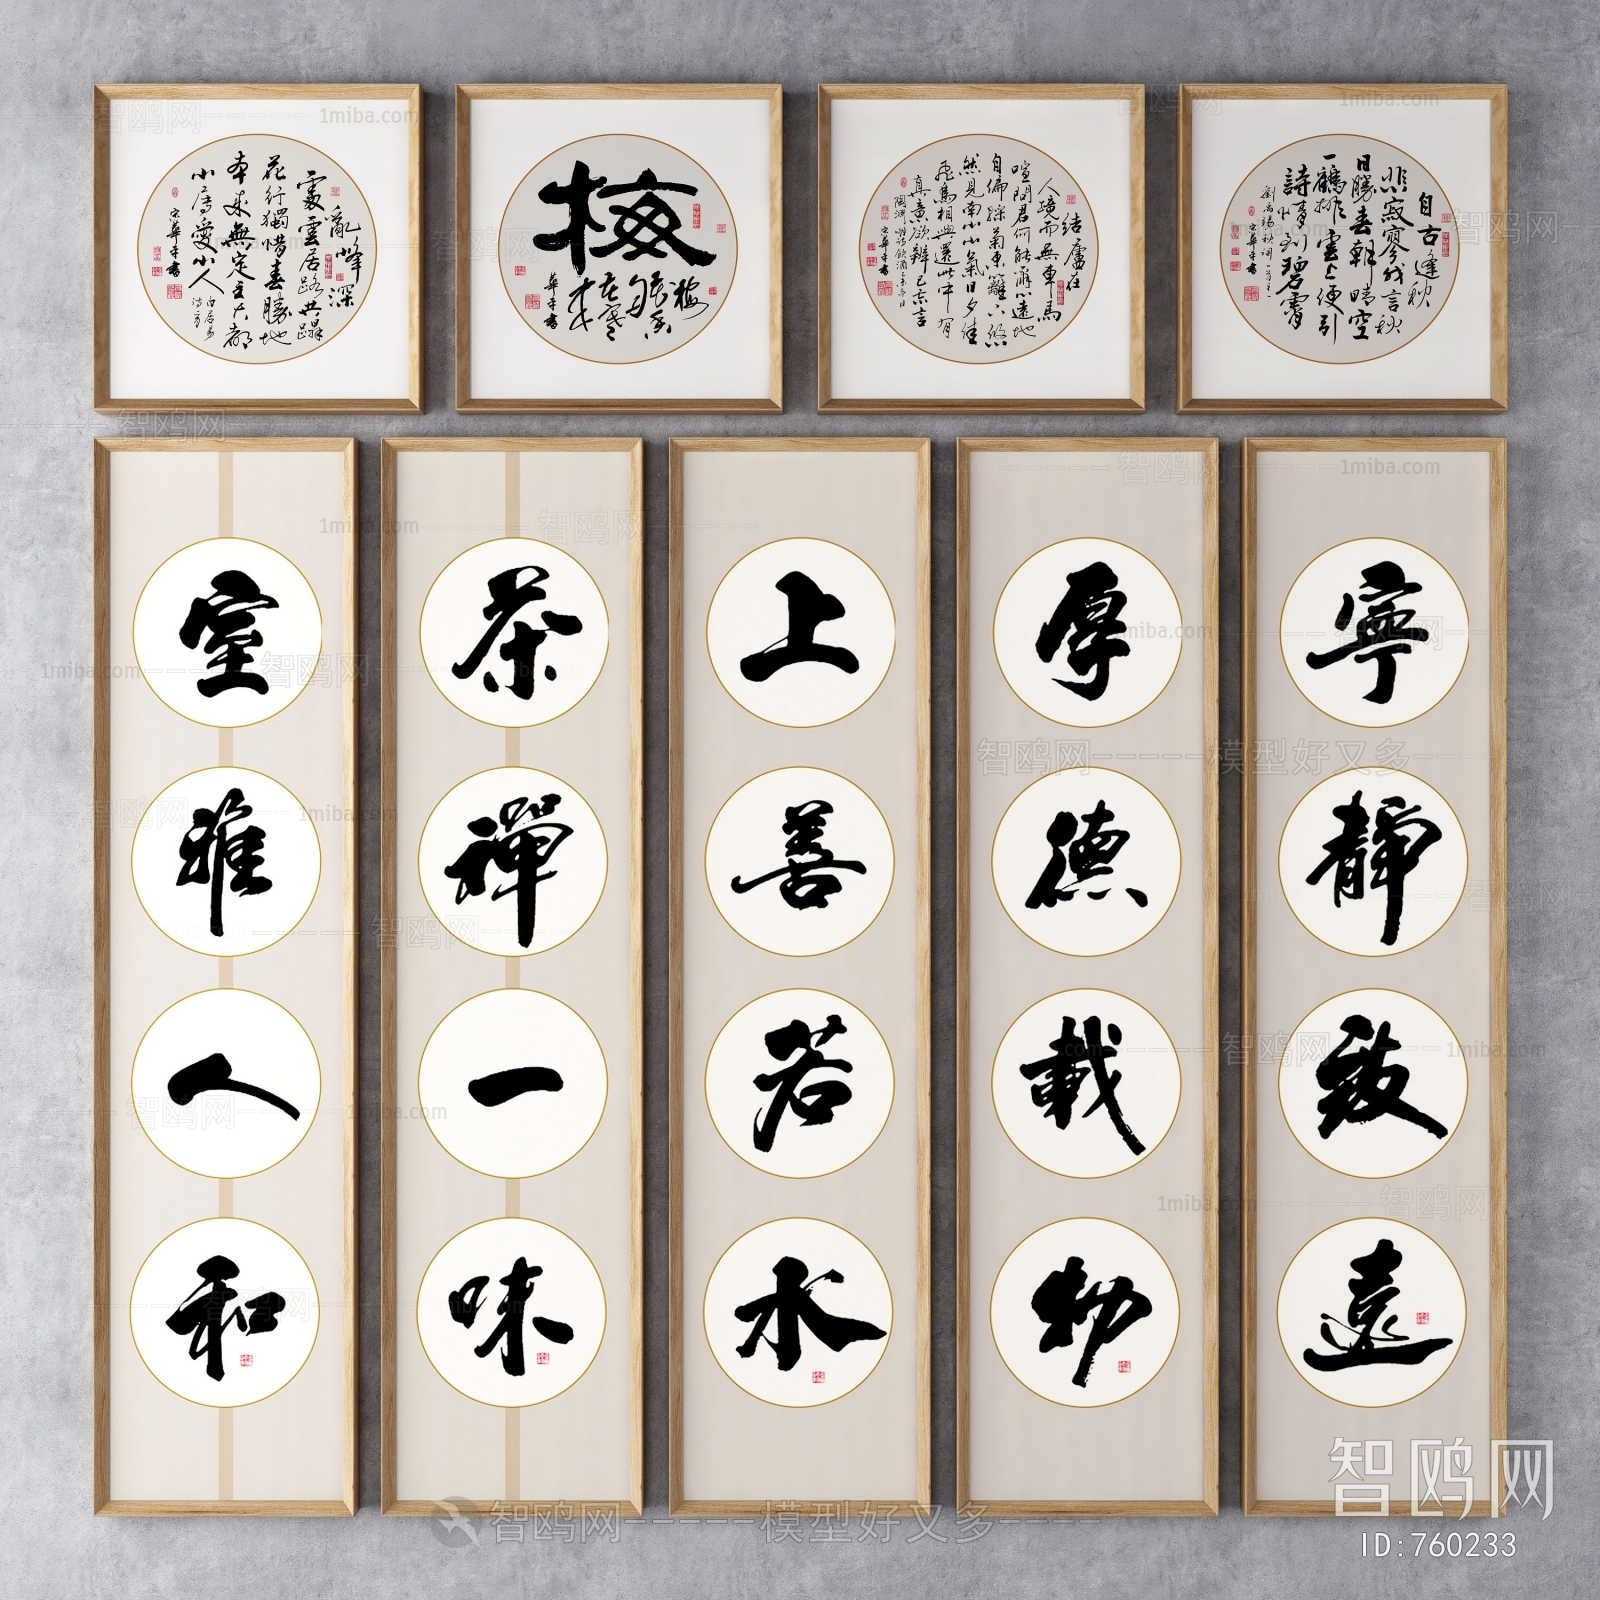 亂峰深
處雲居路共躡
花行獨惜春勝地
本來無定主大都
山屬愛山人
白居易
宋華平書
梅
華平書
結廬在
人境而無車馬
喧問君何能爾心遠地
自偏採菊東籬下悠
然見南山山氣日夕佳
飛鳥相與還此中有
真意欲辯已忘言
陶淵明詩飲酒
宋華平書
自古逢秋
悲寂寥我言秋
日勝春朝晴空
一鶴排雲上便引
詩情到碧霄
劉禹錫秋詞一首
宋華平書
室雅人和
茶禪一味
上善若水
厚德載物
寧靜致遠
智鸥网
ID:760233
智鸥网-----模型好又多----
1miba.com